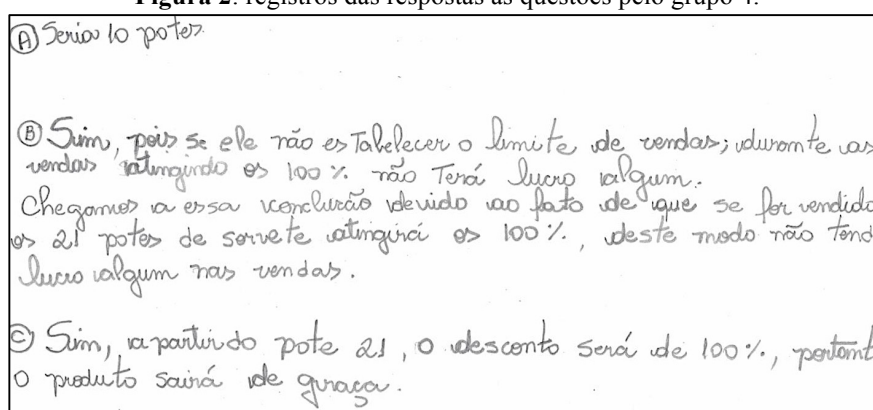 Figura 2: registros das respostas às questões pelo grupo 4.
Ⓐ Seria 10 potes.
Ⓑ Sim, pois se ele não esTabelecer o limite de vendas; durante as
vendas atingindo os 100%. não Terá lucro algum.
Chegamos a essa conclusão devido ao fato de que se for vendido
os 21 potes de sorvete atingirá os 100%., deste modo não tend
lucro algum nas vendas.
Ⓒ Sim, a partir do pote 21, o desconto será de 100%., portant
o produto sairá de graça.